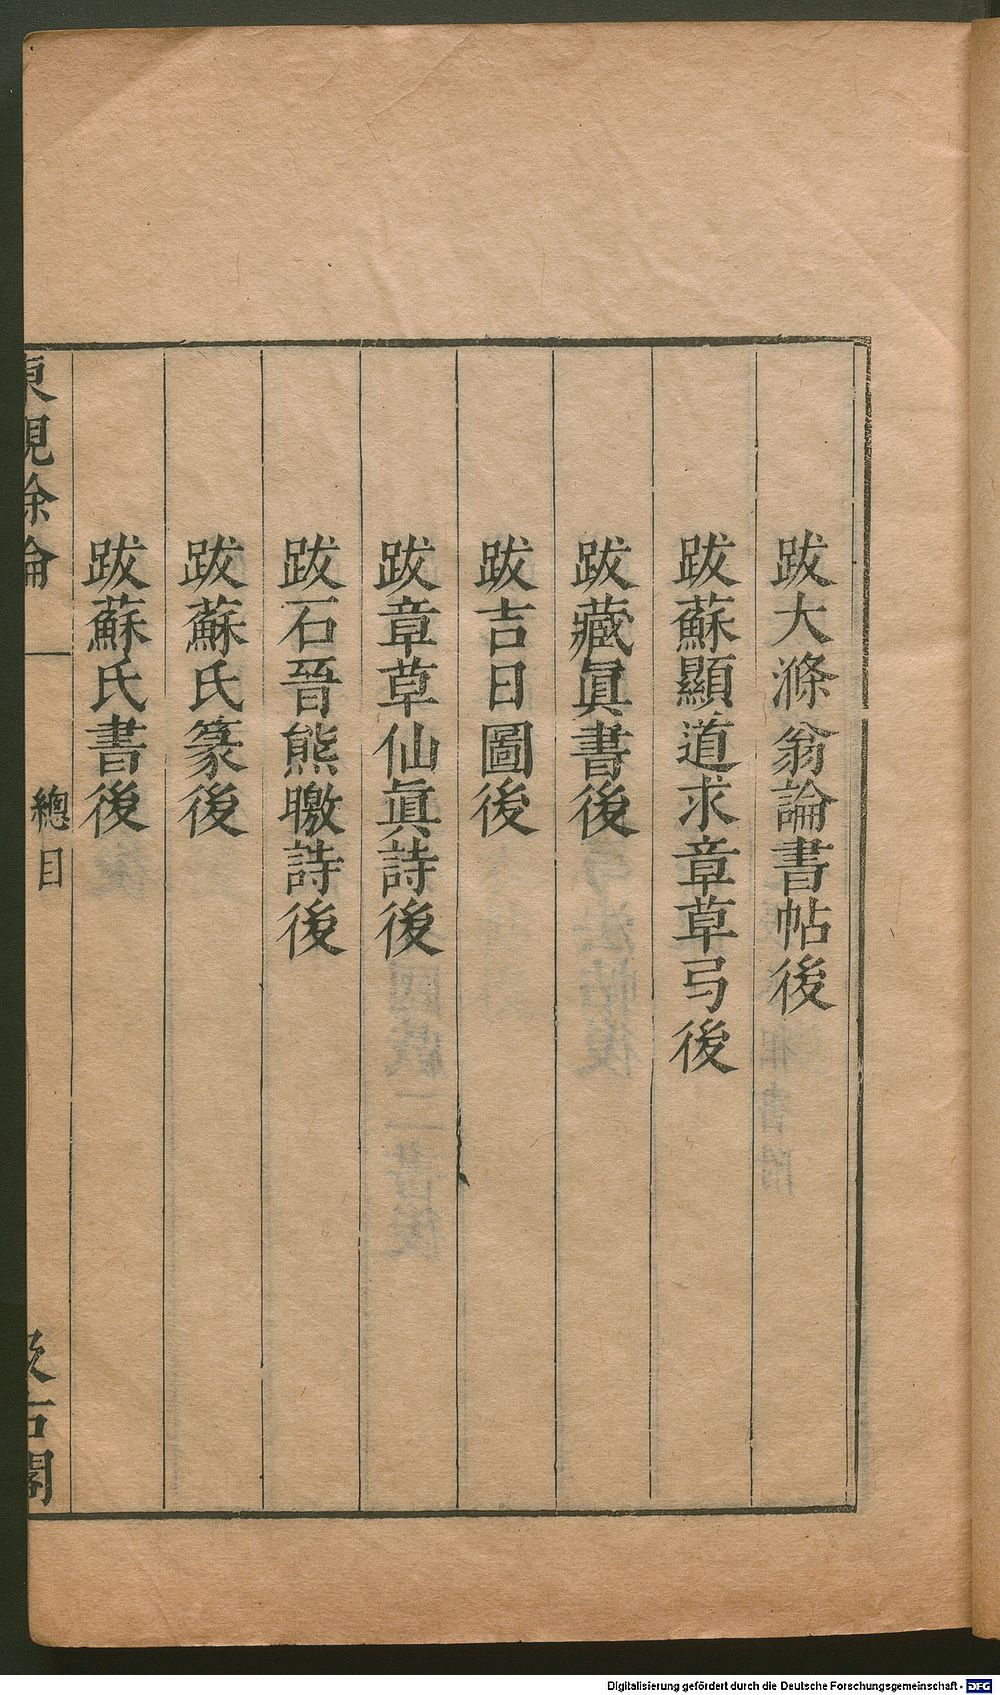 跋大滌翁論書帖後
跋蘇顯道求章草弓後
跋藏眞書後
跋吉日圖後
跋章草仙眞詩後
跋石晉熊皦詩後
跋蘇氏篆後
跋蘇氏書後
東觀餘論
總目
汲古閣
Digitalisierung gefördert durch die Deutsche Forschungsgemeinschaft - DFG